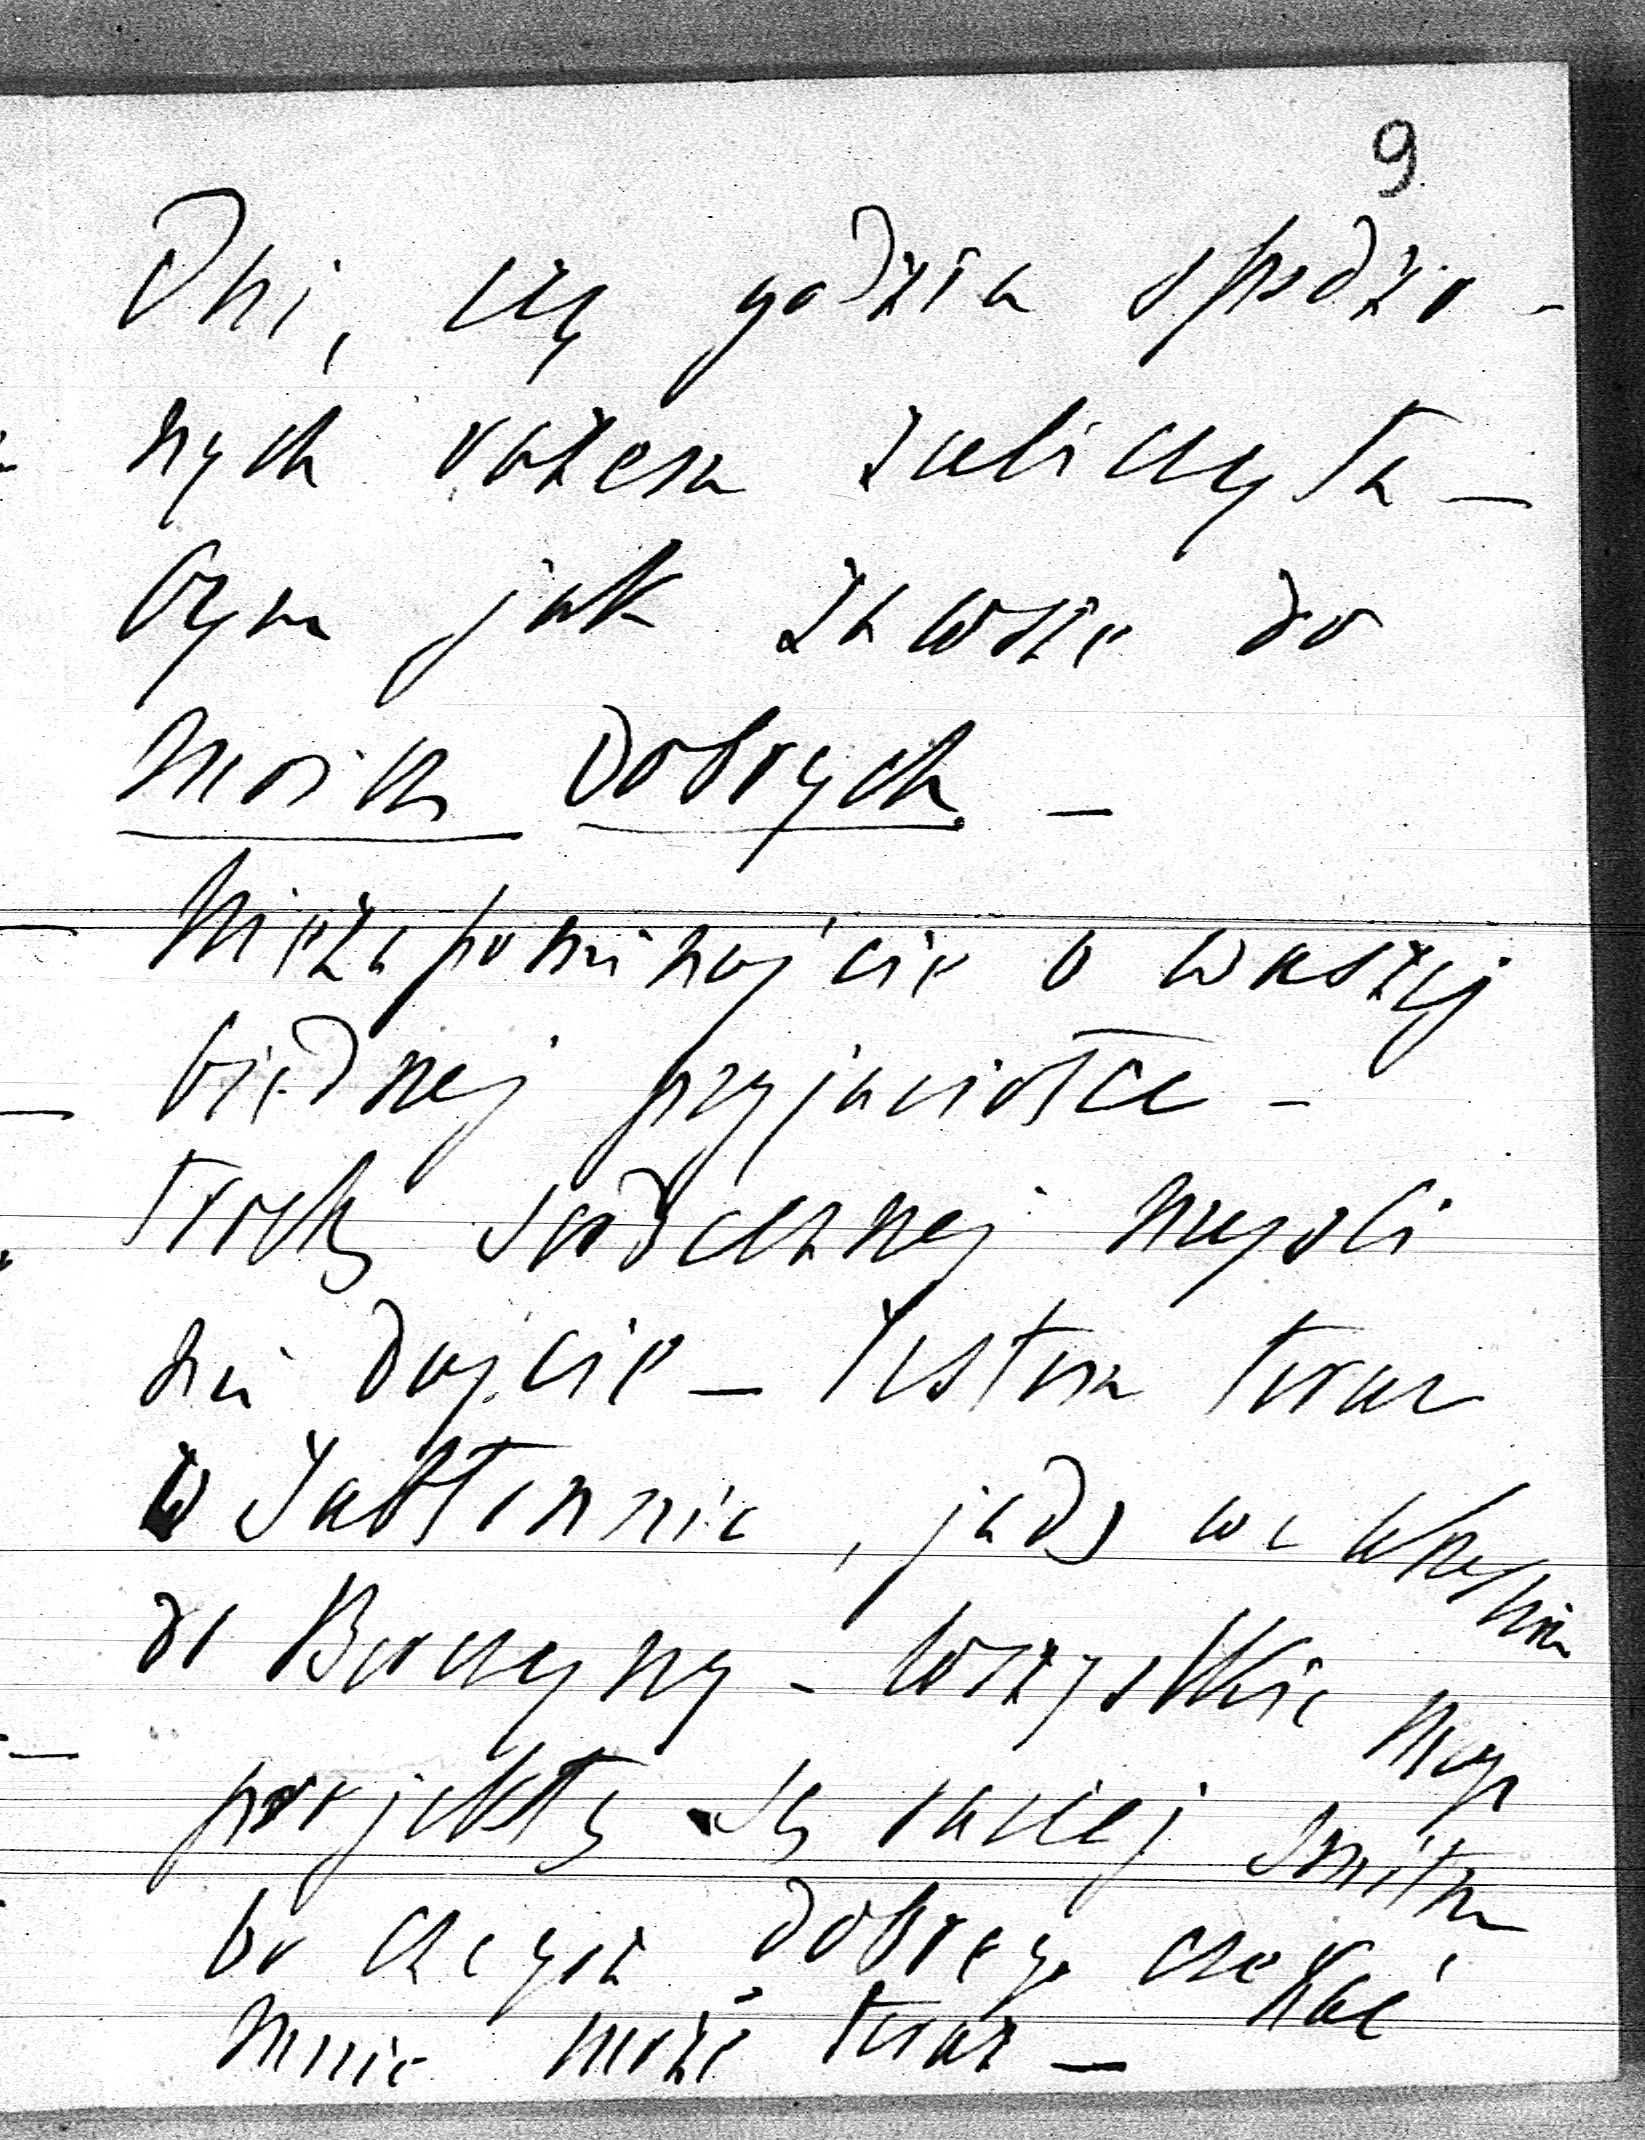 9
Dni, czy godzin spędzo-
nych razem zaliczyła-
bym jak zawsze do
moich dobrych –
Niezapominajcie o waszej
biednej przyjaciółce –
trochę serdecznej myśli
mi dajcie – Jestem teraz
w Jabłonnie, jadę we wrześniu
do Buczyny – wszystkie moje
projekty są raczej smutne
bo czegoż dobrego czekać
mnie może teraz –